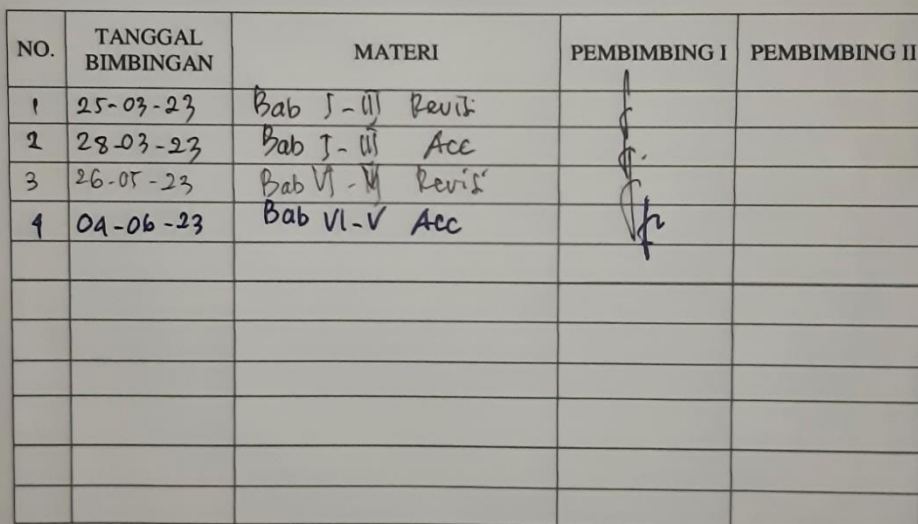 NO. TANGGAL BIMBINGAN MATERI PEMBIMBING I PEMBIMBING II
1 25-03-23 Bab I-III Revisi
2 28-03-23 Bab I-III Acc
3 26-05-23 Bab VI - Revisi
4 04-06-23 Bab VI-V Acc